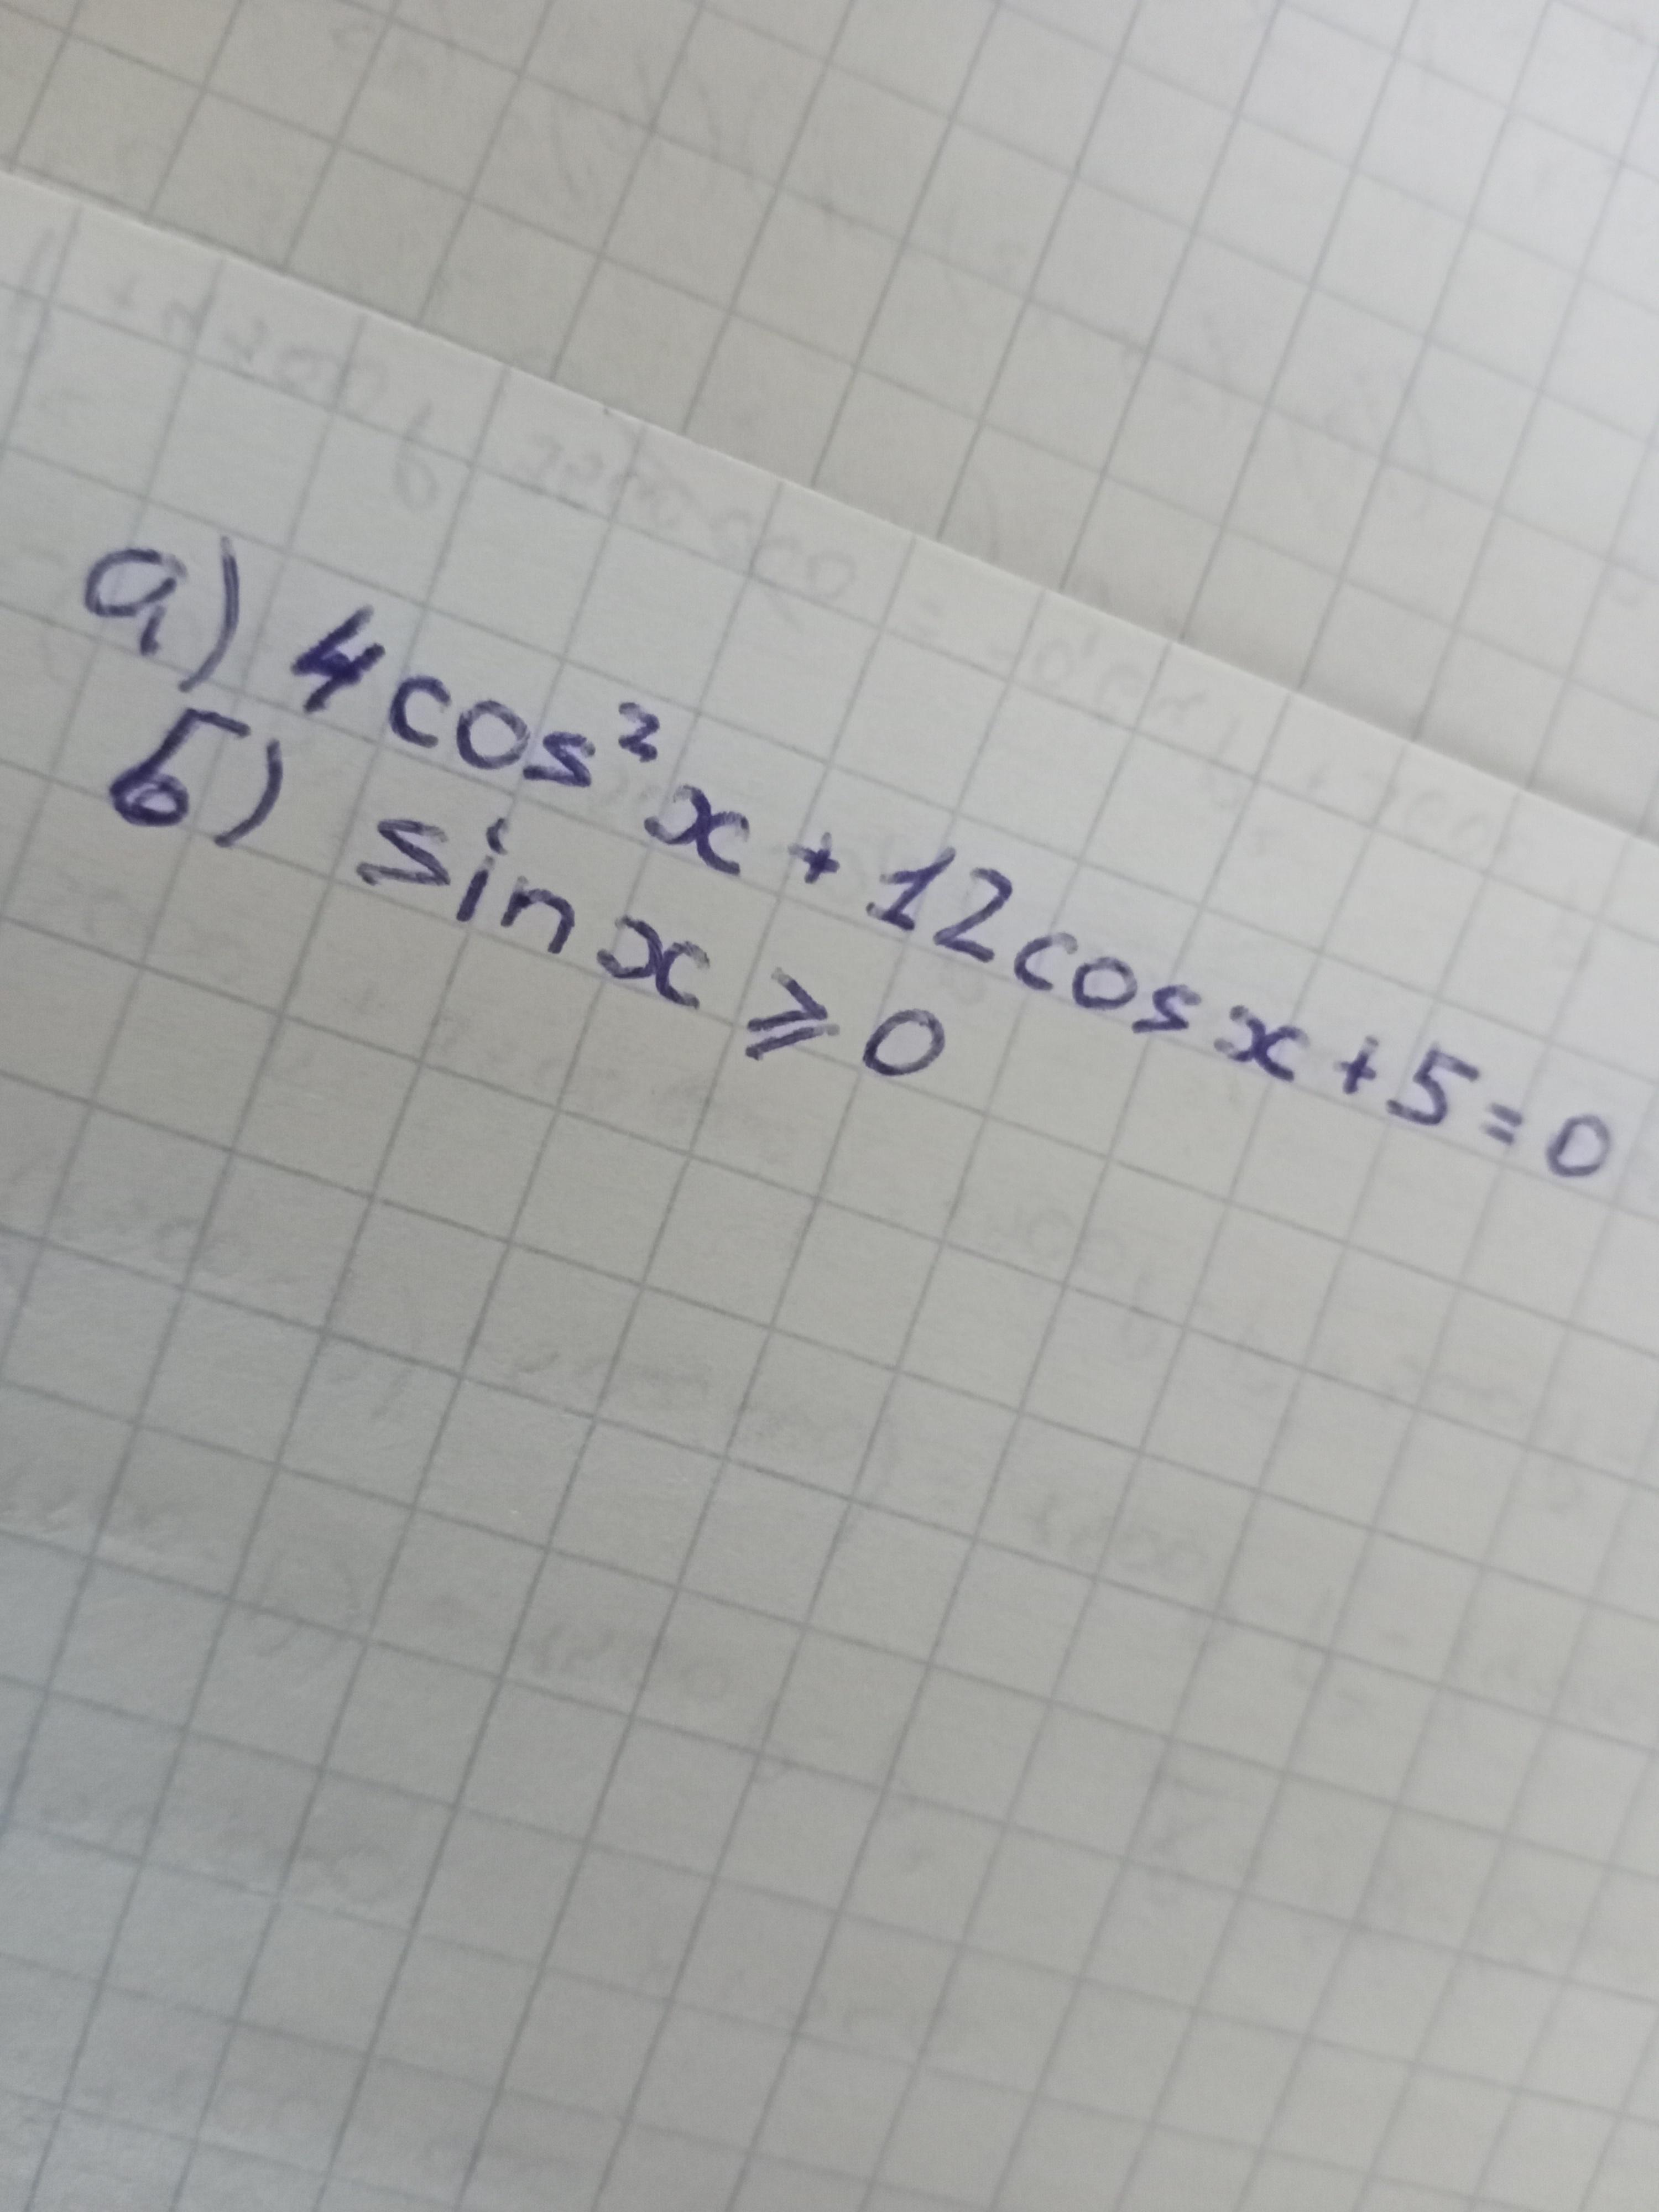 а) 4cos²x + 12cosx + 5 = 0
б) sinx ⩾ 0